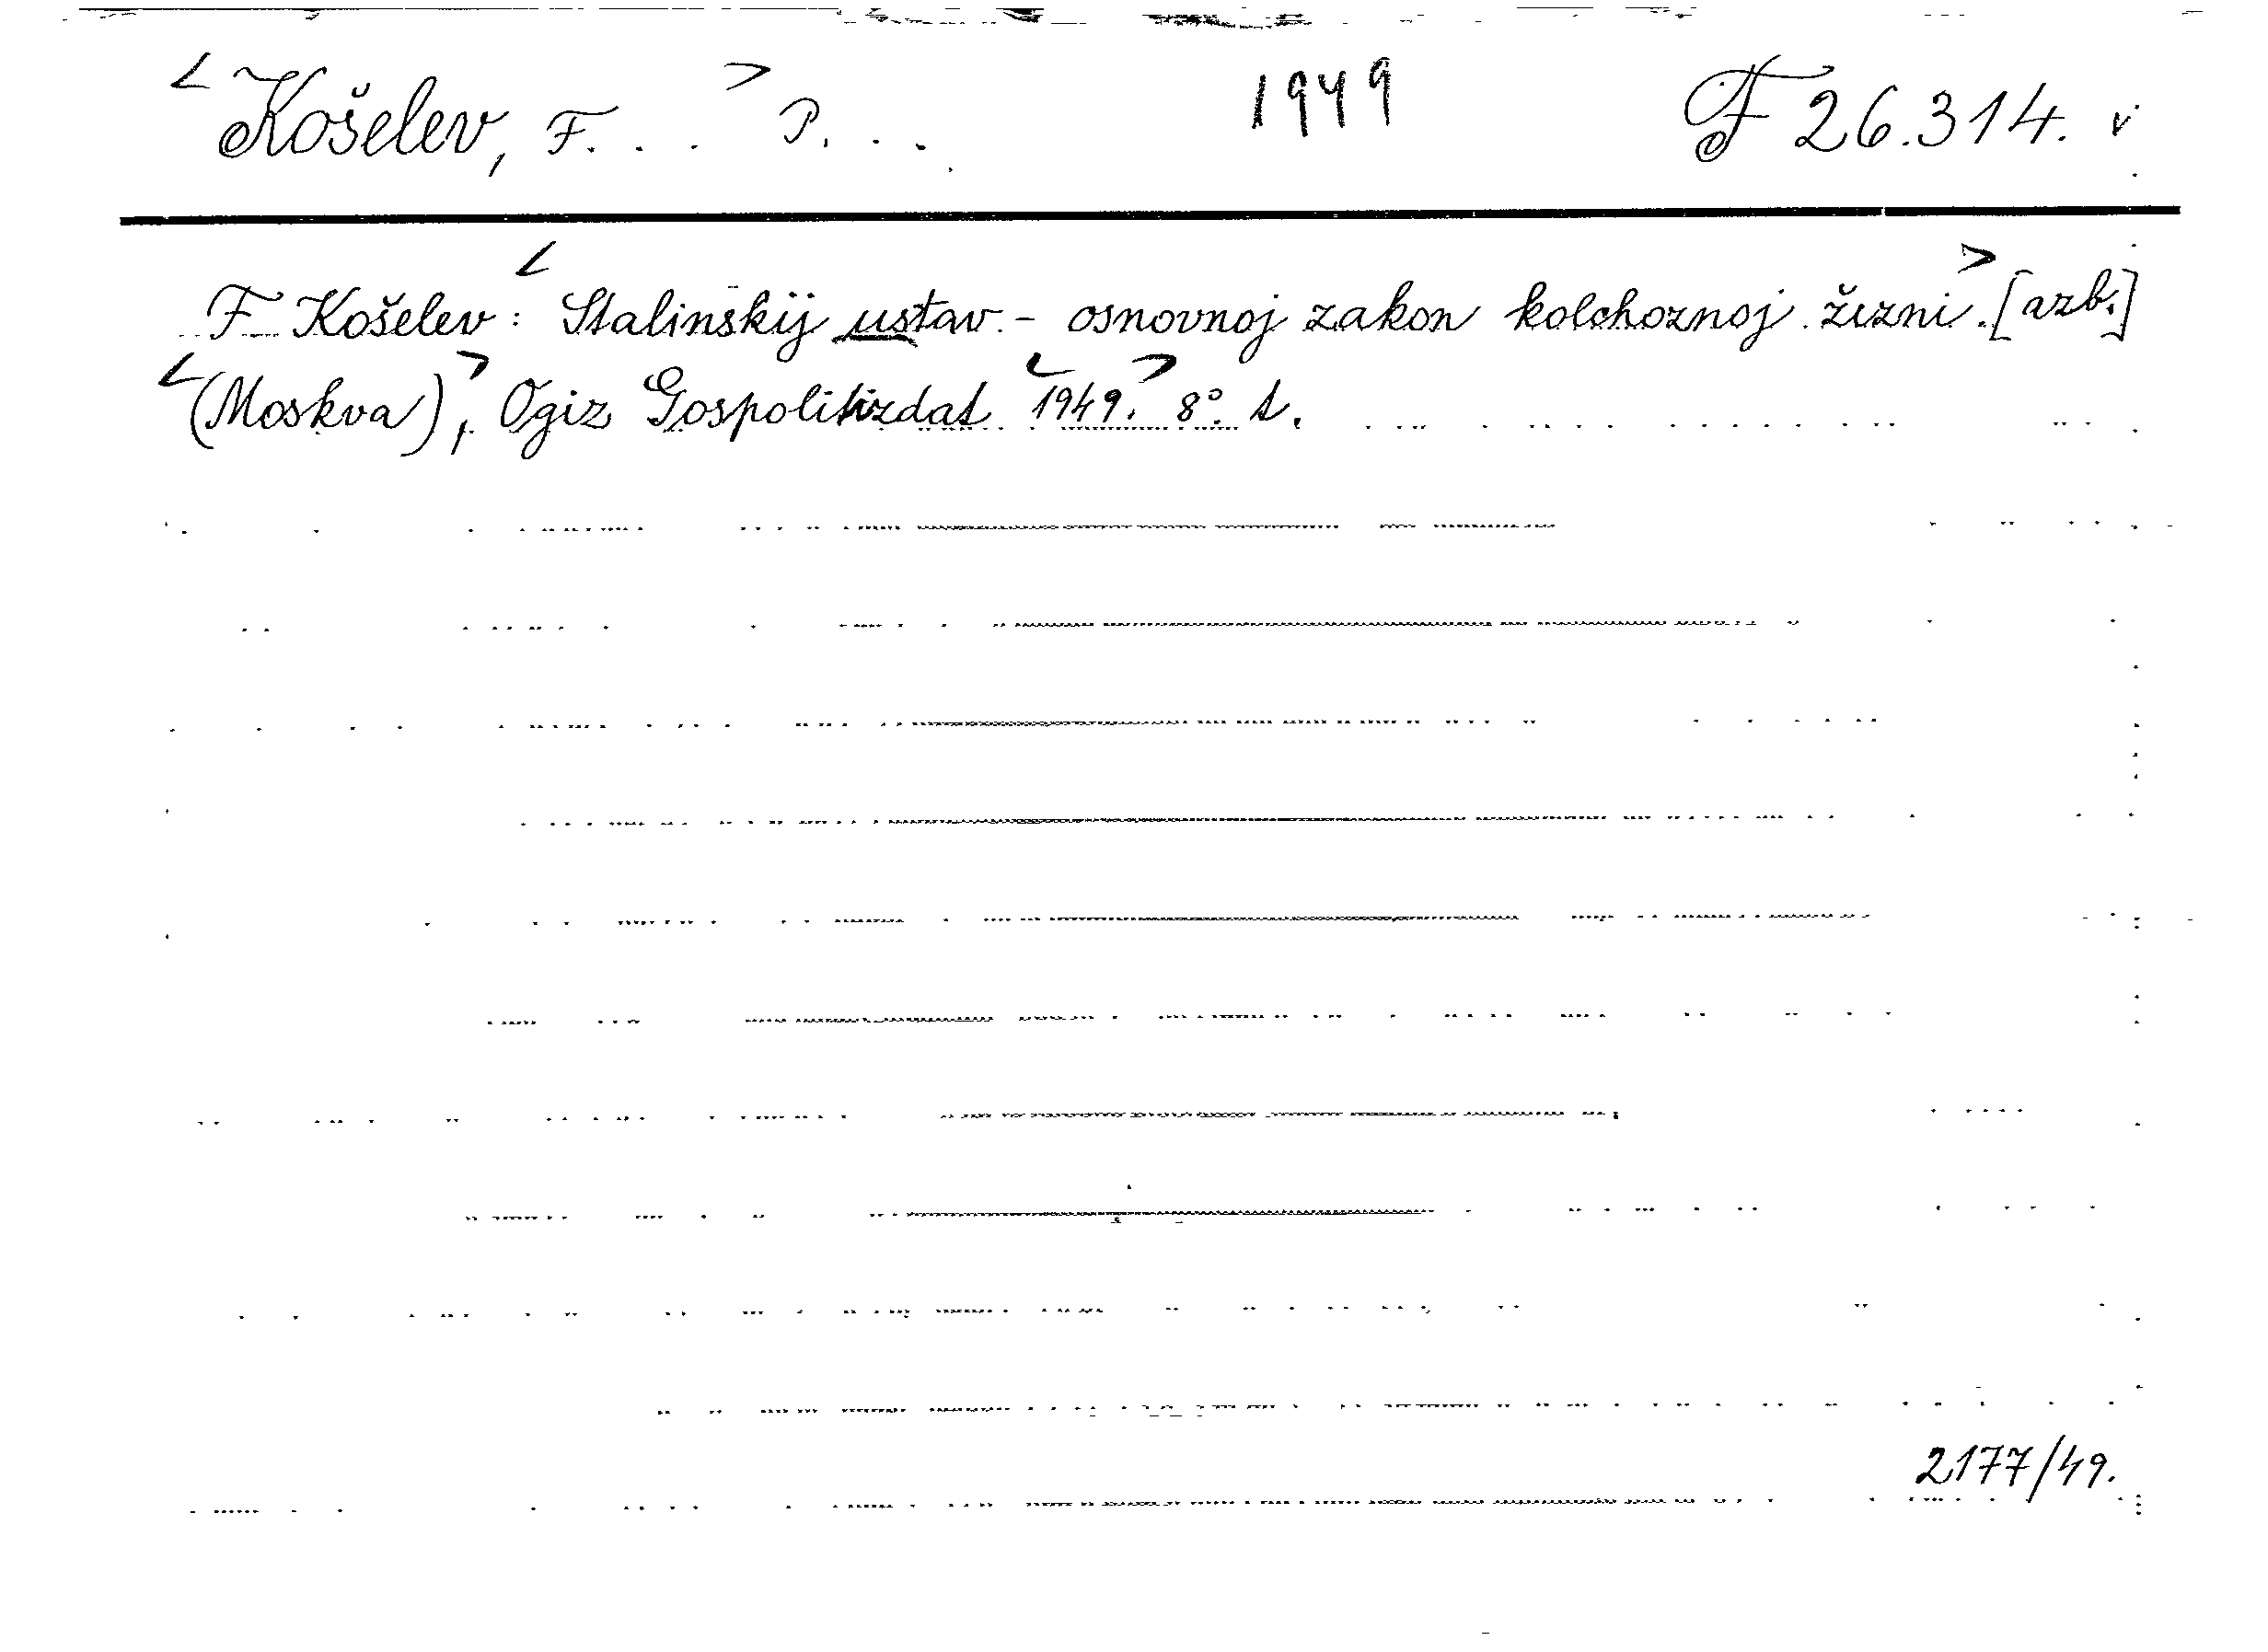 < Košelev, F. . . > P. . . . 1949 F 26.314. v
F Košelev: < Stalinskij ustav. - osnovnoj zakon kolchoznoj žizni >. [azb.]
< (Moskva) >, Ogiz Gospolitizdat < 1949. > 8°. t.
2177/49.